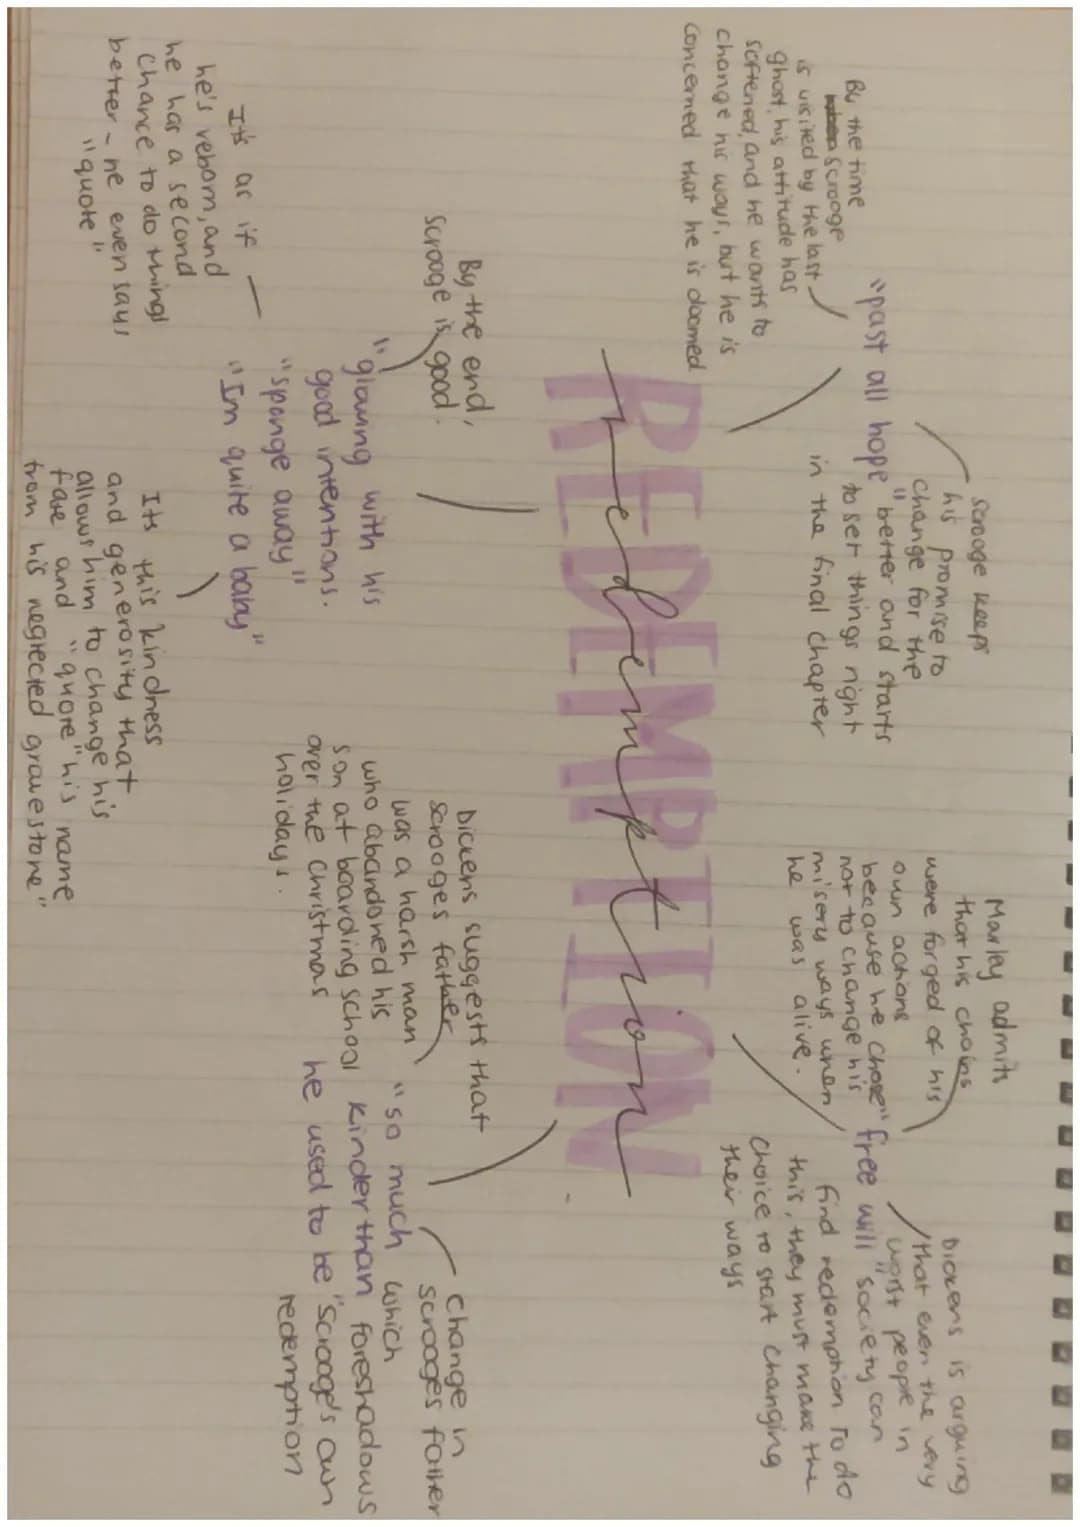 REDEMPTION
redemption
"past all hope"
By the time
Scrooge
is visited by the last
ghost, his attitude has
softened, and he wants to
change his ways, but he is
concerned that he is doomed
Scrooge keeps
his promise to
change for the
better and starts
to set things right
in the final chapter
"free will"
Marley admits
that his chains
were forged of his
own actions
because he chose
not to change his
misery ways when
he was alive.
Dickens is arguing
that even the very
worst people in
society can
find redemption To do
this, they must make the
choice to start changing
their ways
By the end,
Scrooge is good.
"glowing with his
good intentions.
"sponge away"
"I'm quite a baby"
It's as if
he's reborn, and
he has a second
chance to do things
better - he even says
"quote"
Its this kindness
and generosity that
allows him to change his
fate and "quote" his name
from his neglected gravestone"
Dickens suggests that
scrooges father
was a harsh man
who abandoned his
son at boarding school
over the christmas
holidays.
"so much
kinder than
he used to be"
Change in
scrooges father
which
foreshadows
scrooge's own
redemption